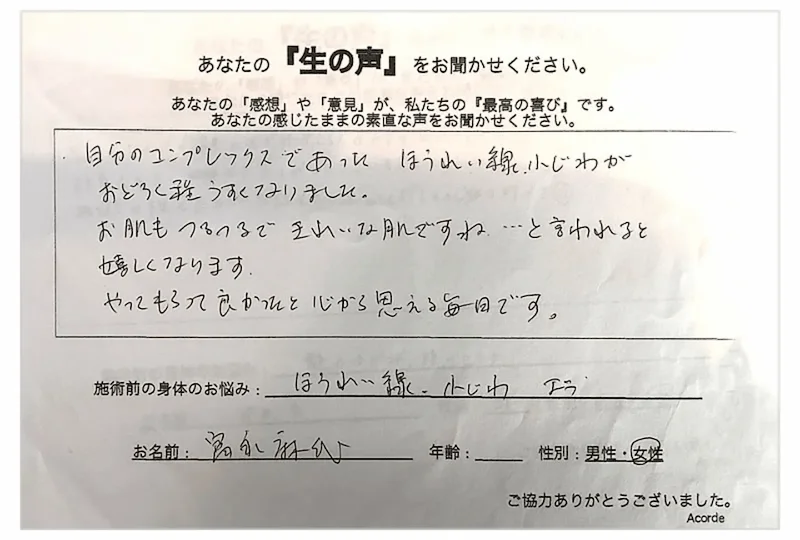 あなたの『生の声』をお聞かせください。
あなたの「感想」や「意見」が、私たちの『最高の喜び』です。
あなたの感じたままの素直な声をお聞かせください。
自分のコンプレックスであった ほうれい線、小じわが
おどろく程うすくなりました。
お肌もつるつるで きれいな肌ですね…と言われると
嬉しくなります。
やってもらって良かったと心から思える毎日です。
施術前の身体のお悩み： ほうれい線、小じわ
お名前： 年齢： 性別：男性・女性
ご協力ありがとうございました。
Acorde